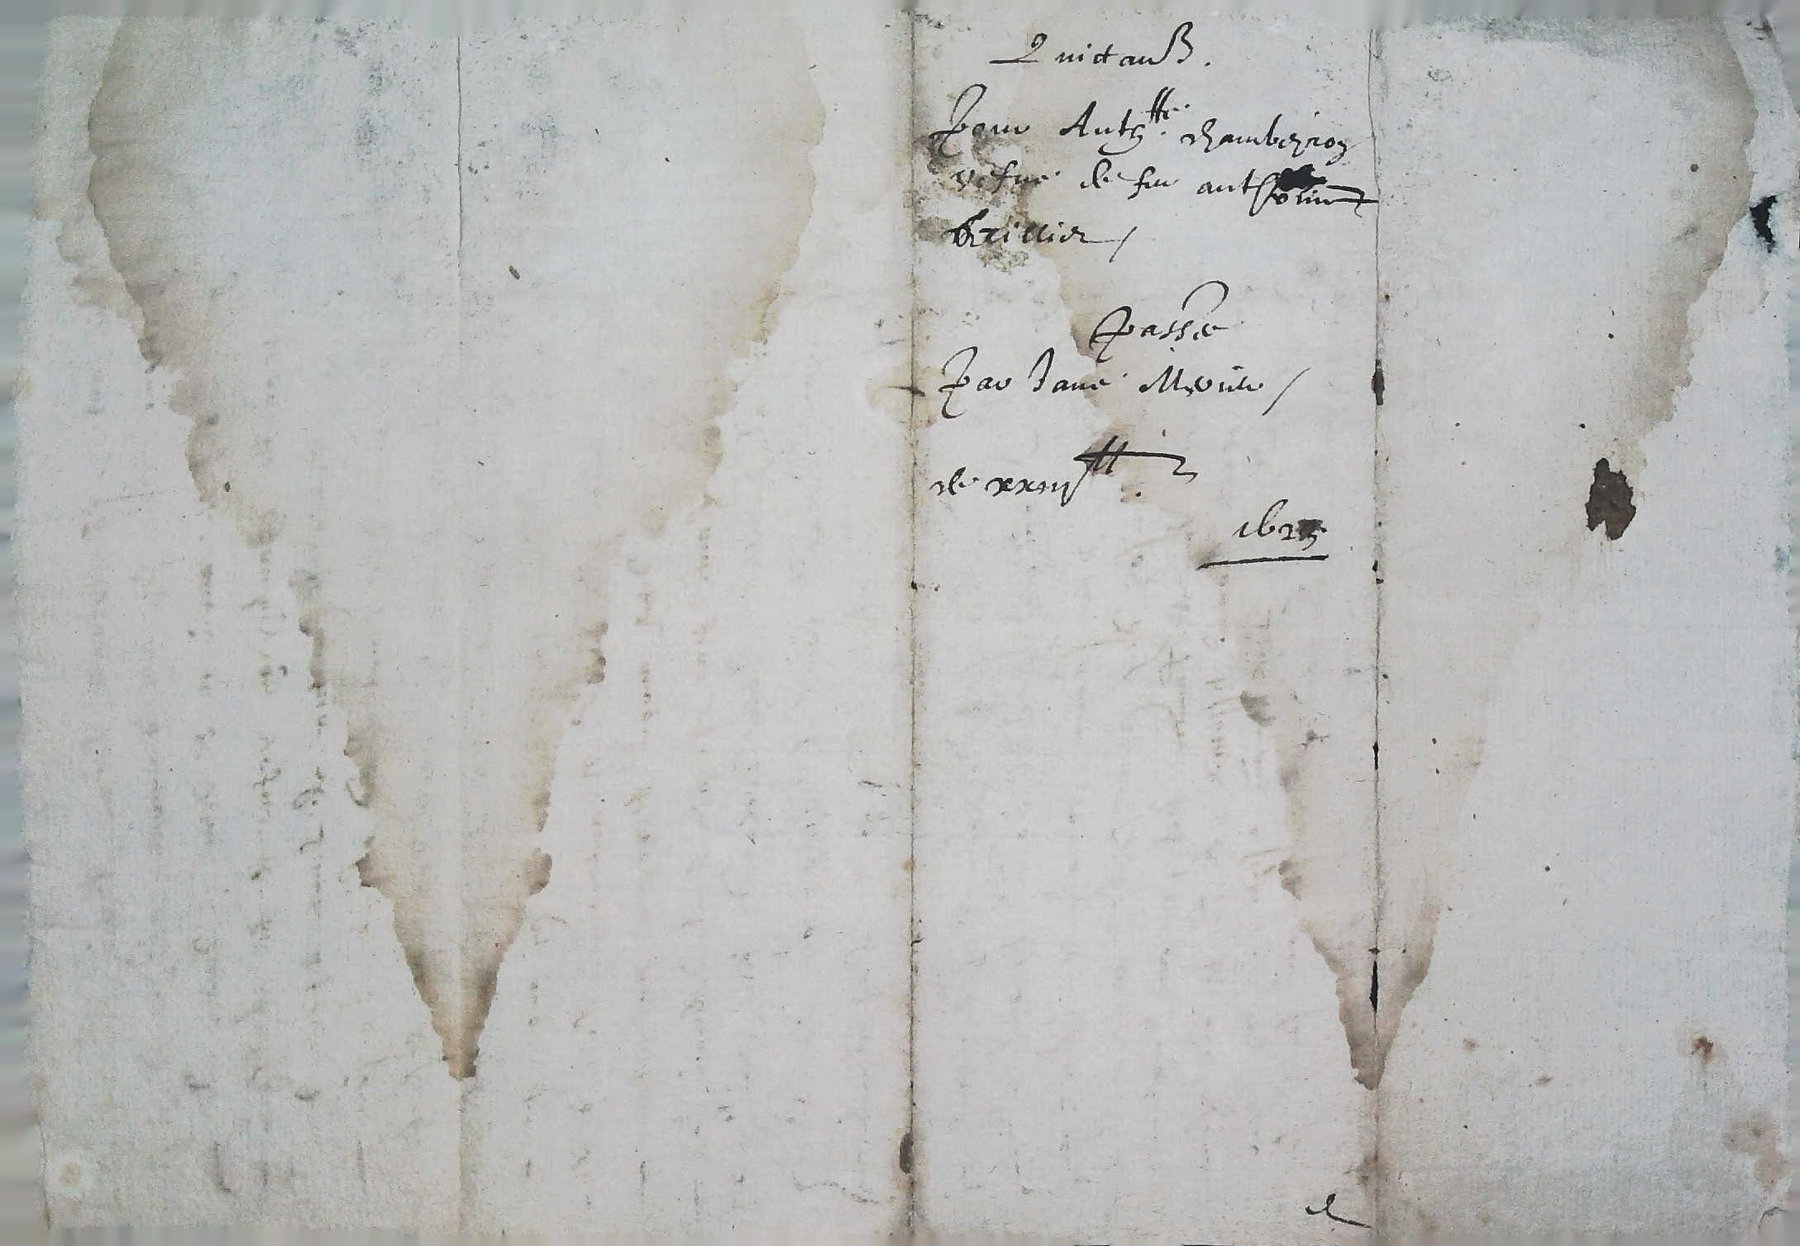 Quictanß.
Pour Anthtte Chambeyron
vefve de feu anthoine
Brillier /
passée
Par Jane Meunier /
de xxiiij lt
1625